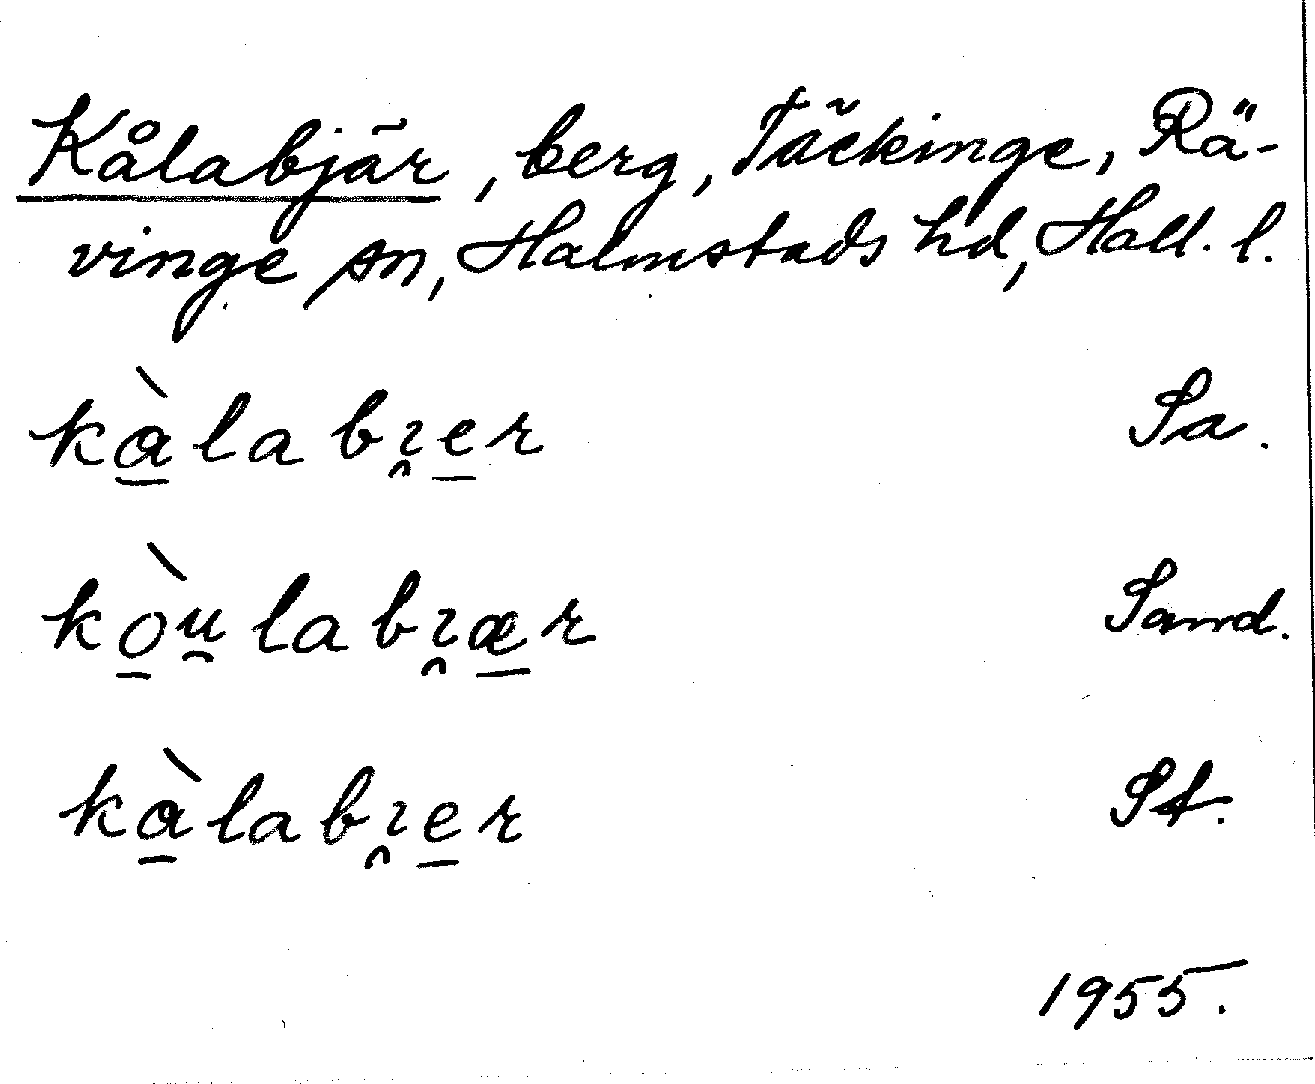 Kålabjär, berg, Täckinge, Rä-
vinge sn, Halmstads hd, Hall. l.
kɑ̠̀labɪ̯e̠r Sa.
kò̠u̯labɪ̯æ̠r Sand.
kɑ̠̀labɪ̯e̠r St.
1955.